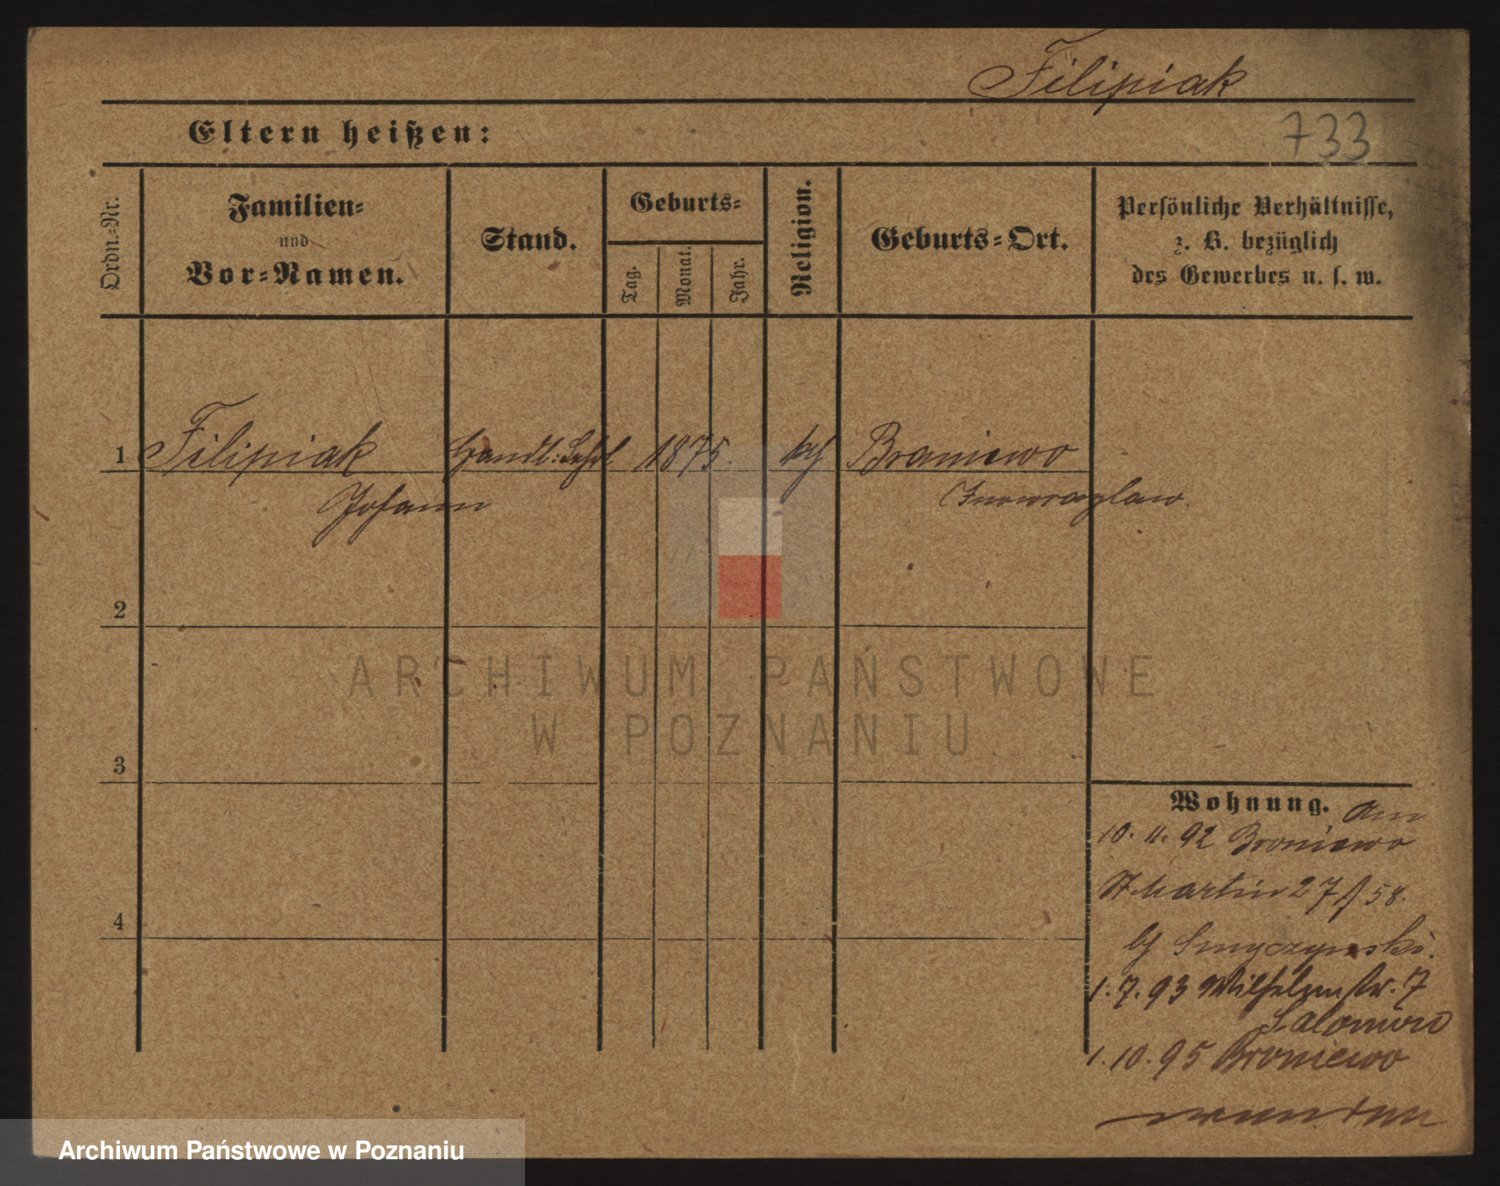 Filipiak
Eltern heißen:
733
Ordn.-Nr.
Familien-
und
Vor-Namen.
Stand.
Geburts-
Tag.
Monat.
Jahr.
Religion.
Geburts-Ort.
Persönliche Verhältnisse,
z. B. bezüglich
des Gewerbes u. s. w.
1 Filipiak Handl: Lehrl 1875. kth Braniewo
Johann Inowrazlaw.
2
ARCHIWUM PAŃSTWOWE
W POZNANIU
3
Wohnung. Am
10. 11. 92 Broniewo
St Martin 27 58.
b/ Smyczynski.
1. 7. 93 Wilhelmstr. 7
1. 10. 95 Broniewo
4
Archiwum Państwowe w Poznaniu